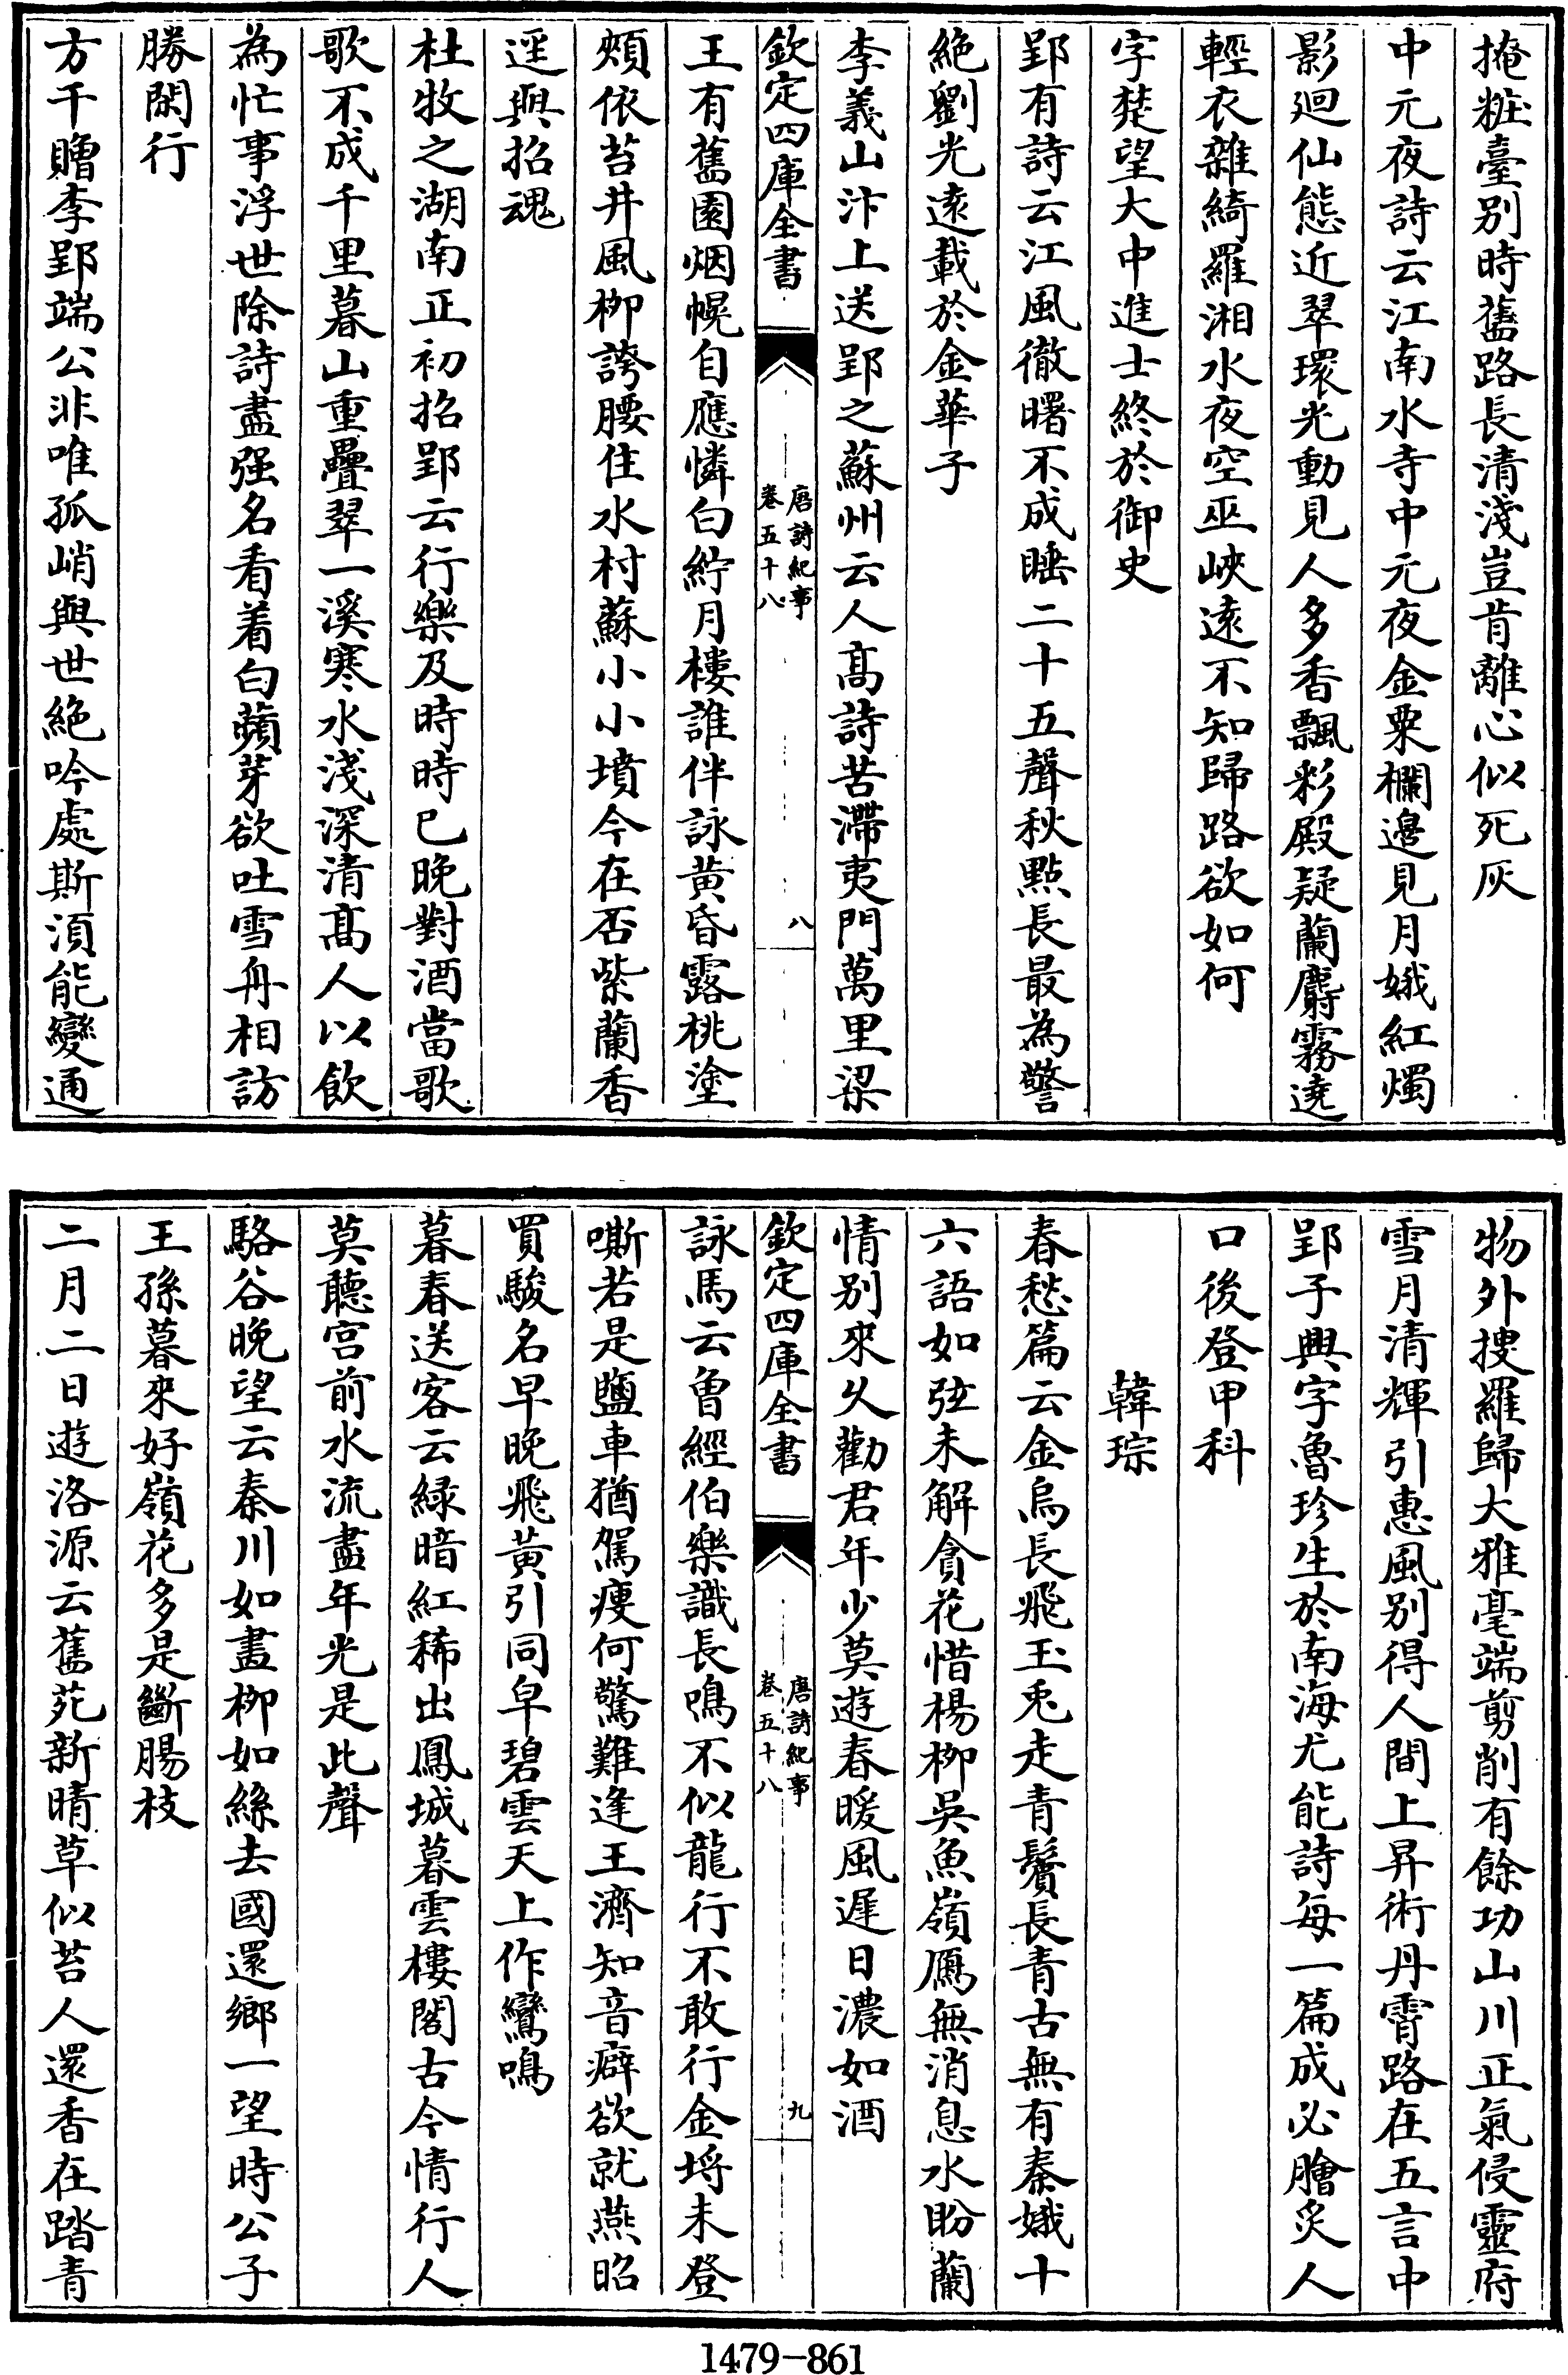 掩粧臺别時舊路長清淺豈肯離心似死灰
中元夜詩云江南水寺中元夜金粟欄邉見月娥紅燭
影廻仙態近翠環光動見人多香飄彩殿疑蘭麝霧遶
輕衣雜綺羅湘水夜空巫峽遠不知歸路欲如何
字楚望大中進士終於御史
郢有詩云江風徹曙不成睡二十五聲秋點長最為警
絶劉光遠載於金華子
李義山汴上送郢之蘇州云人髙詩苦滯夷門萬里梁
欽定四庫全書
唐詩紀事
卷五十八
八
王有舊園烟幌自應憐白紵月樓誰伴詠黄昏露桃塗
頰依苔井風柳誇腰住水村蘇小小墳今在否紫蘭香
逕與招魂
杜牧之湖南正初招郢云行樂及時時已晚對酒當歌
歌不成千里暮山重疊翠一溪寒水淺深清髙人以飲
為忙事浮世除詩盡强名看着白蘋芽欲吐雪舟相訪
勝閑行
方干贈李郢端公非唯孤峭與世絶吟處斯須能變通
物外搜羅歸大雅毫端剪削有餘功山川正氣侵靈府
雪月清輝引惠風别得人間上昇術丹霄路在五言中
郢子興字魯珍生於南海尤能詩每一篇成必膾炙人
口後登甲科
韓琮
春愁篇云金烏長飛玉兎走青鬢長青古無有秦娥十
六語如弦未解貪花惜楊柳吳魚嶺鴈無消息水盼蘭
情别來乆勸君年少莫遊春暖風遲日濃如酒
欽定四庫全書
唐詩紀事
卷五十八
九
詠馬云曾經伯樂識長鳴不似龍行不敢行金埒未登
嘶若是鹽車猶駕瘦何驚難逢王濟知音癖欲就燕昭
買駿名早晚飛黄引同皁碧雲天上作鸞鳴
暮春送客云緑暗紅稀出鳳城暮雲樓閣古今情行人
莫聽宫前水流盡年光是此聲
駱谷晚望云秦川如畫柳如絲去國還鄉一望時公子
王孫暮來好嶺花多是斷腸枝
二月二日遊洛源云舊苑新晴草似苔人還香在踏青
1479-861